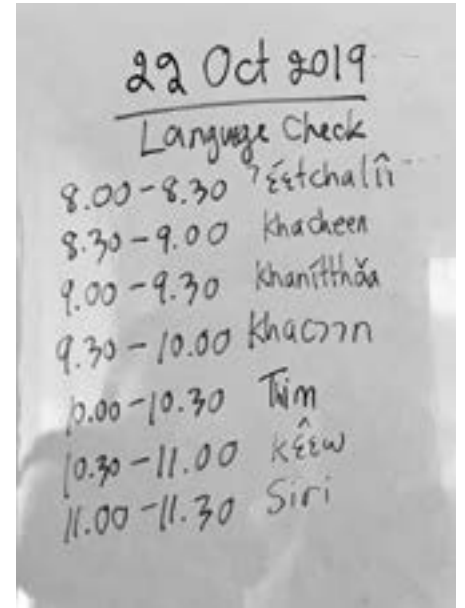 22 Oct 2019
Language Check
8.00-8.30 ʔɛ́ɛtchalîi
8.30-9.00 khacheen
9.00-9.30 khanítthǎa
9.30-10.00 khacɔɔn
10.00-10.30 Twim
10.30-11.00 kɛ̂ɛw
11.00-11.30 Siri